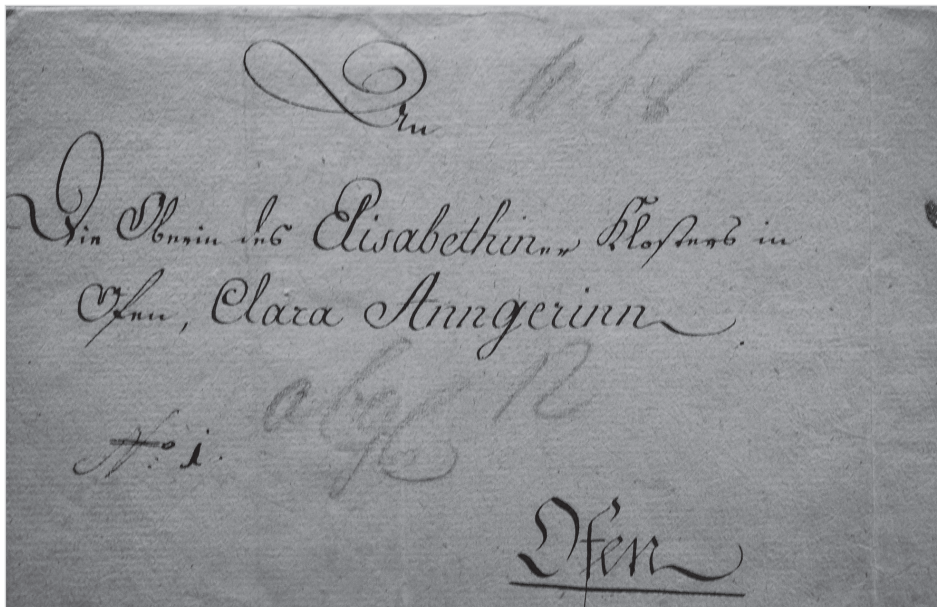 An
Die Oberin des Elisabethiner Klosters in
Ofen, Clara Anngerinn.
No. 1.
Ofen